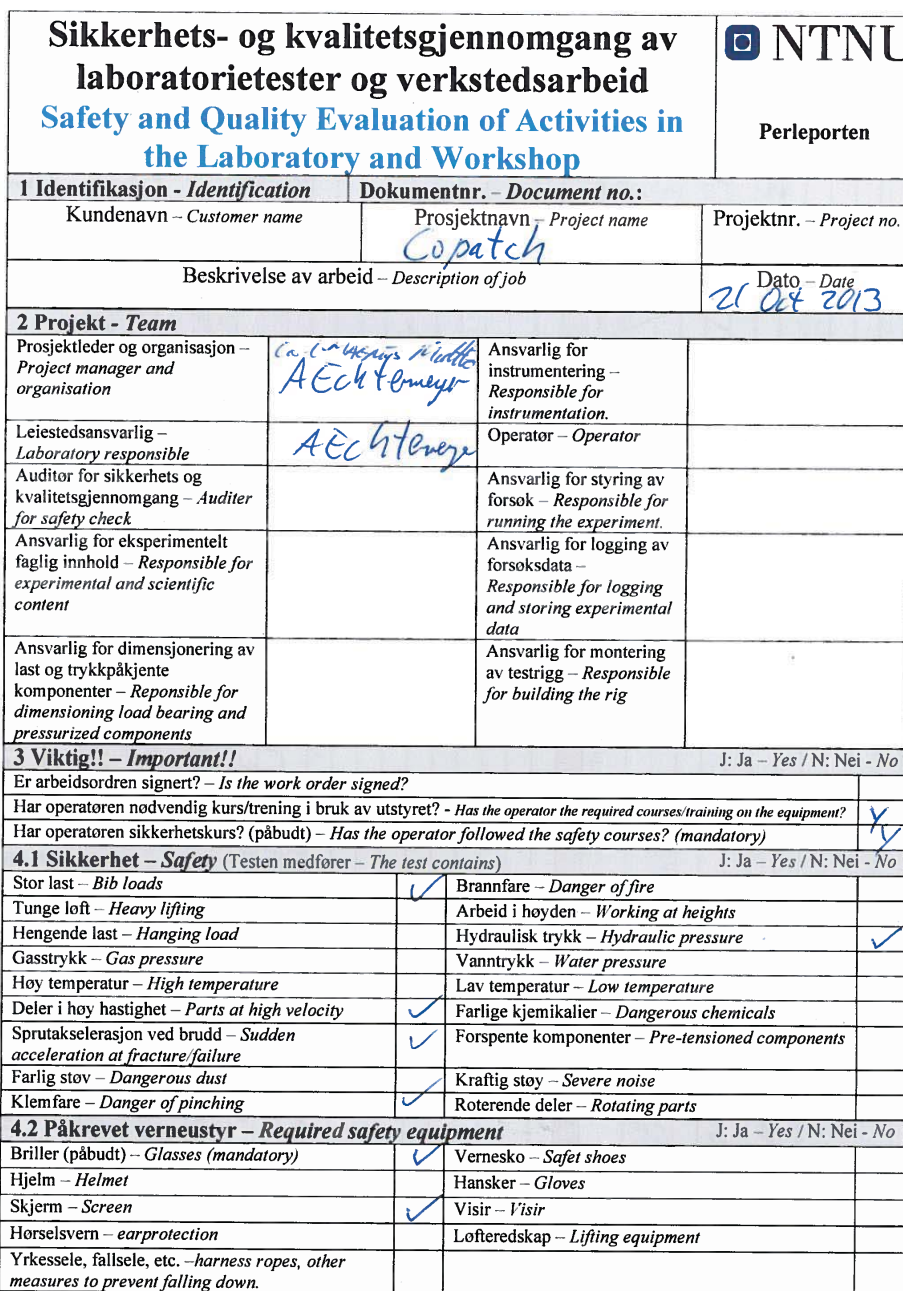 Sikkerhets- og kvalitetsgjennomgang av
laboratorietester og verkstedsarbeid
Safety and Quality Evaluation of Activities in
the Laboratory and Workshop
NTNU
Perleporten
1 Identifikasjon - Identification
Dokumentnr. – Document no.:
Kundenavn – Customer name
Prosjektnavn – Project name
Projektnr. – Project no.
Copatch
Beskrivelse av arbeid – Description of job
Dato – Date
21 Oct 2013
2 Projekt - Team
Prosjektleder og organisasjon –
Project manager and
organisation
AEchtermeyer
Ansvarlig for
instrumentering –
Responsible for
instrumentation.
Leiestedsansvarlig –
Laboratory responsible
AEchtermeye
Operatør – Operator
Auditør for sikkerhets og
kvalitetsgjennomgang – Auditer
for safety check
Ansvarlig for styring av
forsøk – Responsible for
running the experiment.
Ansvarlig for eksperimentelt
faglig innhold – Responsible for
experimental and scientific
content
Ansvarlig for logging av
forsøksdata –
Responsible for logging
and storing experimental
data
Ansvarlig for dimensjonering av
last og trykkpåkjente
komponenter – Reponsible for
dimensioning load bearing and
pressurized components
Ansvarlig for montering
av testrigg – Responsible
for building the rig
3 Viktig!! – Important!!
J: Ja – Yes / N: Nei - No
Er arbeidsordren signert? – Is the work order signed?
Har operatøren nødvendig kurs/trening i bruk av utstyret? - Has the operator the required courses/training on the equipment? Y
Har operatøren sikkerhetskurs? (påbudt) – Has the operator followed the safety courses? (mandatory) Y
4.1 Sikkerhet – Safety (Testen medfører – The test contains)
J: Ja – Yes / N: Nei - No
Stor last – Bib loads ✓
Brannfare – Danger of fire
Tunge løft – Heavy lifting
Arbeid i høyden – Working at heights
Hengende last – Hanging load
Hydraulisk trykk – Hydraulic pressure ✓
Gasstrykk – Gas pressure
Vanntrykk – Water pressure
Høy temperatur – High temperature
Lav temperatur – Low temperature
Deler i høy hastighet – Parts at high velocity ✓
Farlige kjemikalier – Dangerous chemicals
Sprutakselerasjon ved brudd – Sudden
acceleration at fracture/failure ✓
Forspente komponenter – Pre-tensioned components
Farlig støv – Dangerous dust
Kraftig støy – Severe noise
Klemfare – Danger of pinching ✓
Roterende deler – Rotating parts
4.2 Påkrevet verneustyr – Required safety equipment
J: Ja – Yes / N: Nei - No
Briller (påbudt) – Glasses (mandatory) ✓
Vernesko – Safet shoes
Hjelm – Helmet
Hansker – Gloves
Skjerm – Screen ✓
Visir – Visir
Hørselsvern – earprotection
Løfteredskap – Lifting equipment
Yrkessele, fallsele, etc. –harness ropes, other
measures to prevent falling down.